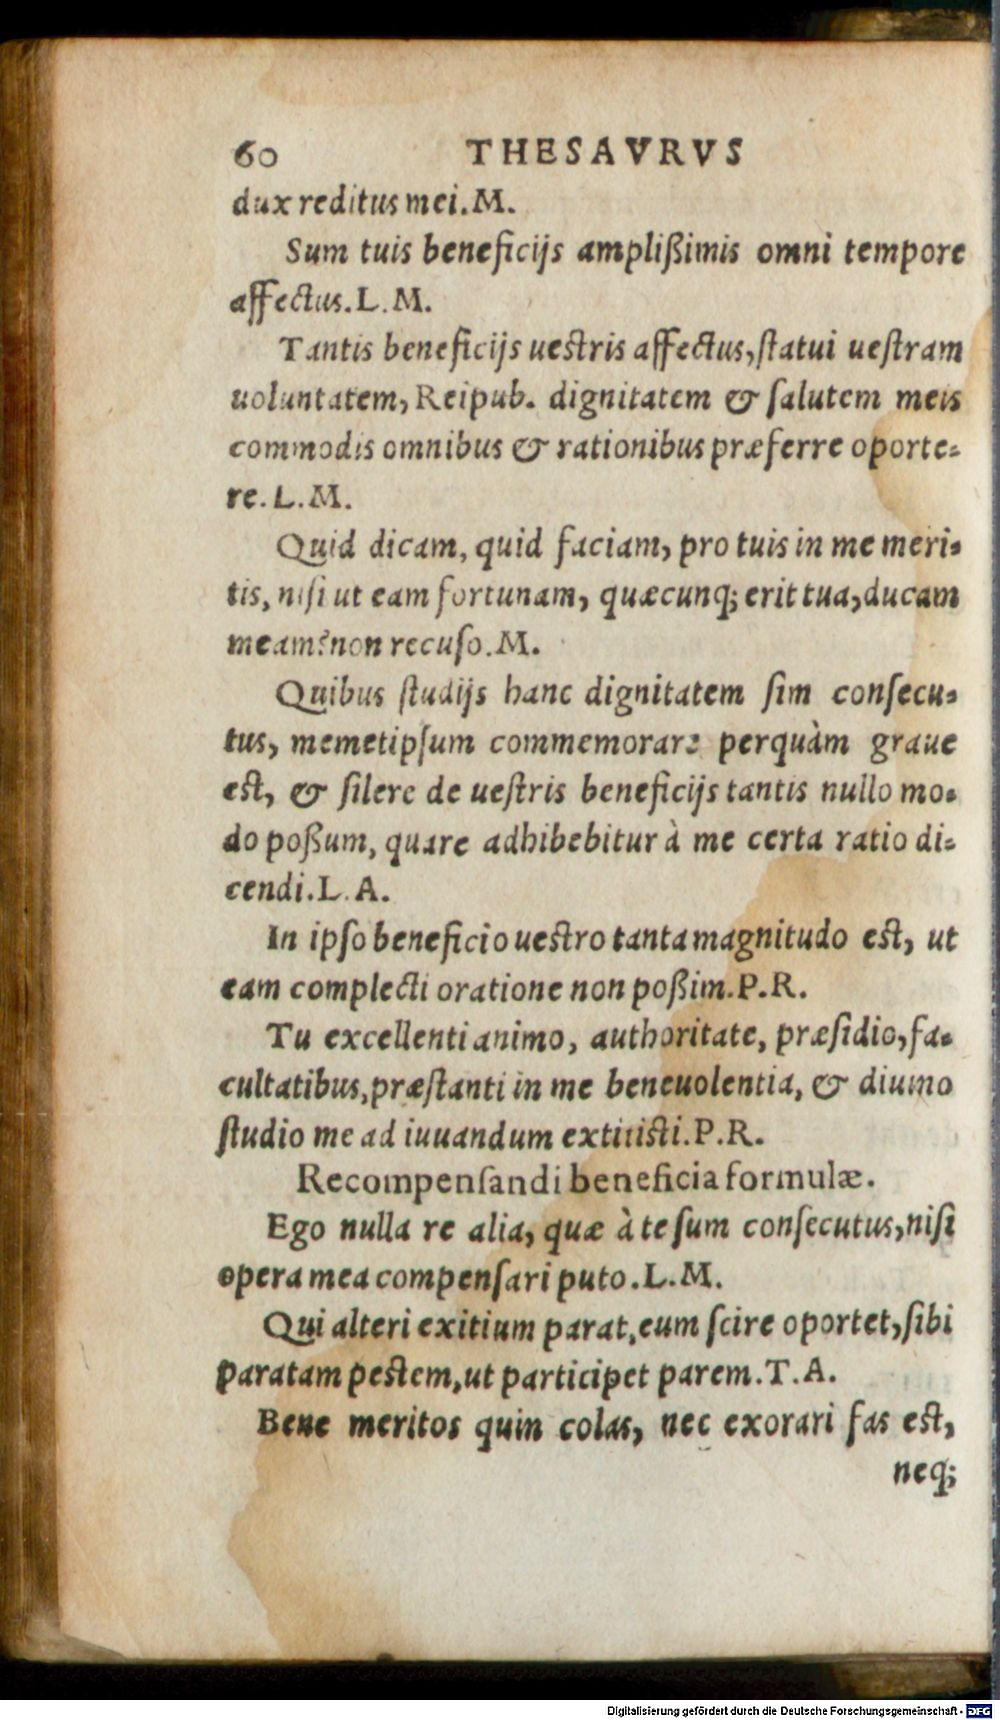 60 THESAVRVS
dux reditus mei. M.
Sum tuis beneficijs amplißimis omni tempore
affectus. L. M.
Tantis beneficijs uestris affectus, statui uestram
uoluntatem, Reipub. dignitatem & salutem meis
commodis omnibus & rationibus præferre oporte-
re. L. M.
Quid dicam, quid faciam, pro tuis in me meri-
tis, nisi ut eam fortunam, quæcunq; erit tua, ducam
meam? non recuso. M.
Quibus studijs hanc dignitatem sim consecu-
tus, memetipsum commemorare perquàm graue
est, & silere de uestris beneficijs tantis nullo mo-
do poßum, quare adhibebitur à me certa ratio di-
cendi. L. A.
In ipso beneficio uestro tanta magnitudo est, ut
eam complecti oratione non poßim. P. R.
Tu excellenti animo, authoritate, præsidio, fa-
cultatibus, præstanti in me beneuolentia, & diuino
studio me ad iuuandum extitisti. P. R.
Recompensandi beneficia formulæ.
Ego nulla re alia, quæ à te sum consecutus, nisi
opera mea compensari puto. L. M.
Qui alteri exitium parat, eum scire oportet, sibi
paratam pestem, ut participet parem. T. A.
Bene meritos quin colas, nec exorari fas est,
neq;
Digitalisierung gefördert durch die Deutsche Forschungsgemeinschaft - DFG